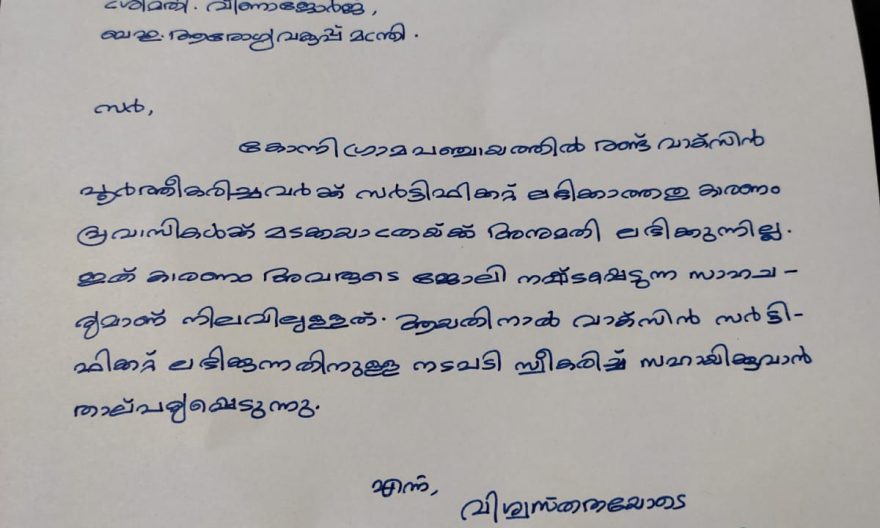 ശ്രീമതി. വീണാജോർജ്ജ്,
ബഹു. ആരോഗ്യവകുപ്പ് മന്ത്രി.
സർ,
കോന്നി ഗ്രാമപഞ്ചായത്തിൽ രണ്ട് വാക്സിൻ
പൂർത്തീകരിച്ചവർക്ക് സർട്ടിഫിക്കറ്റ് ലഭിക്കാത്തതു കാരണം
പ്രവാസികൾക്ക് മടക്കയാത്രയ്ക്ക് അനുമതി ലഭിക്കുന്നില്ല.
ഇത് കാരണം അവരുടെ ജോലി നഷ്ടപ്പെടുന്ന സാഹച-
ര്യമാണ് നിലവിലുള്ളത്. ആയതിനാൽ വാക്സിൻ സർട്ടി-
ഫിക്കറ്റ് ലഭിക്കുന്നതിനുള്ള നടപടി സ്വീകരിച്ച് സഹായിക്കുവാൻ
താല്പര്യപ്പെടുന്നു.
എന്ന്,
വിശ്വസ്തതയോടെ